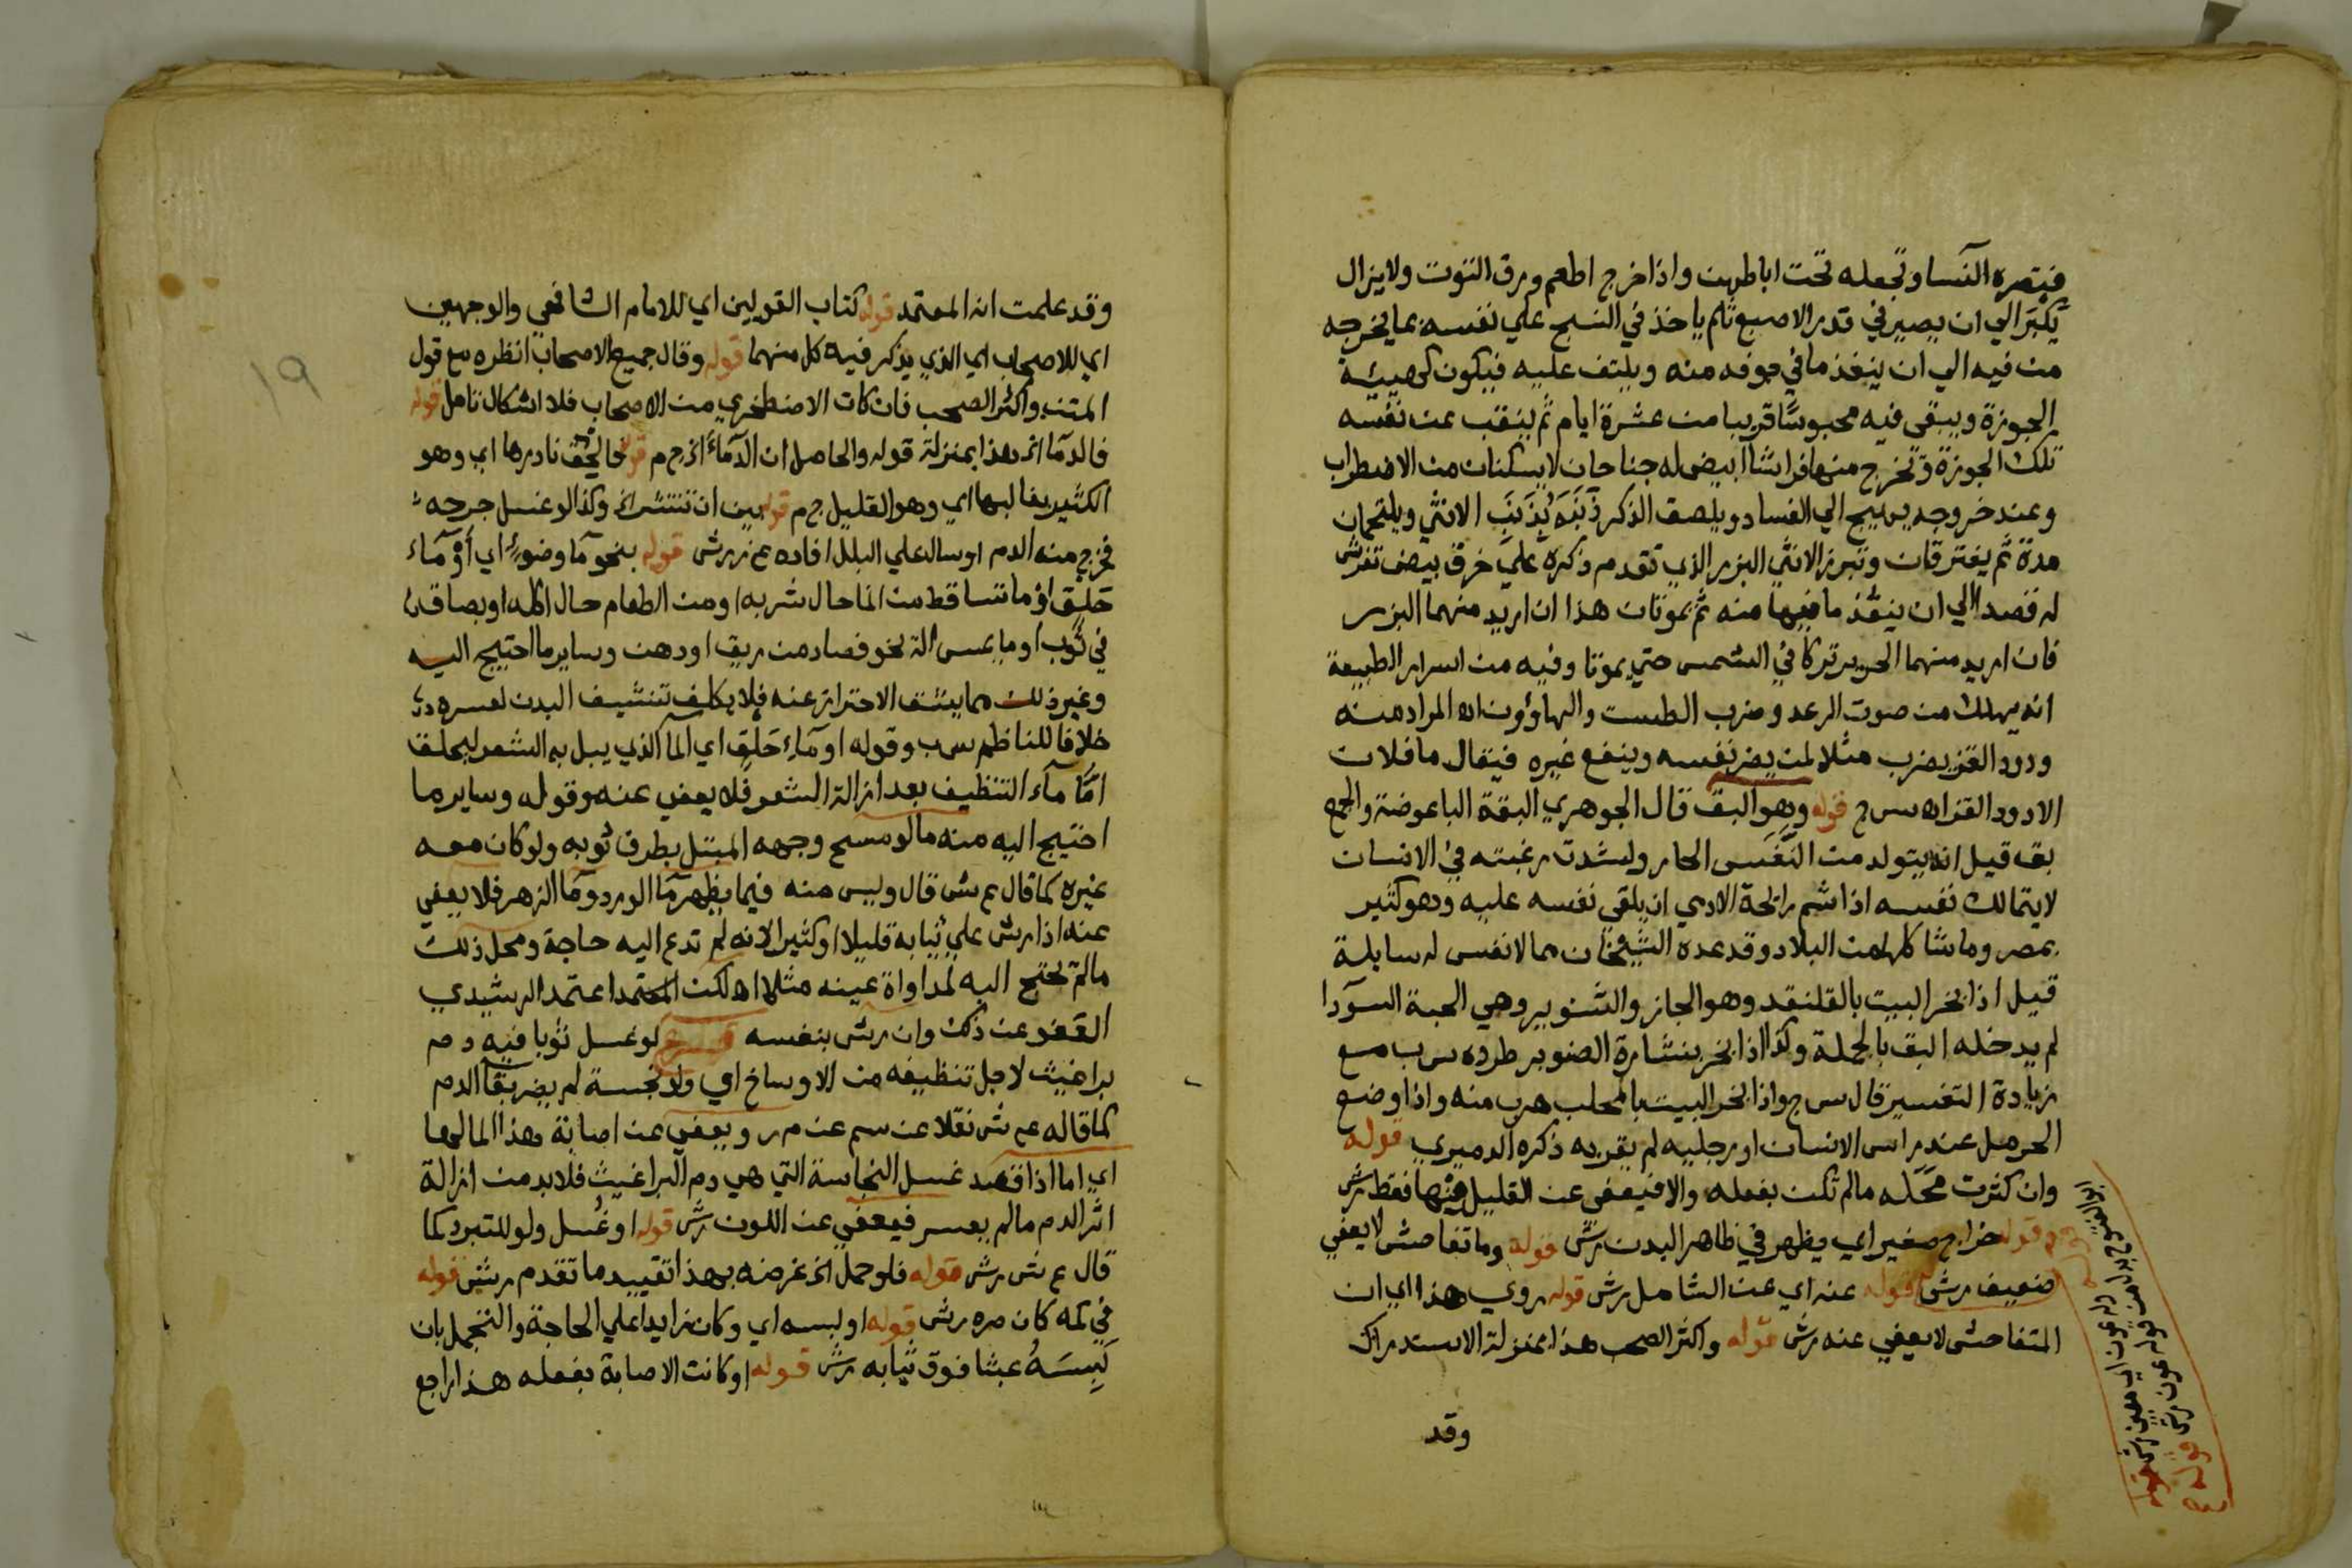 فتصره النسا وتجعله تحت اباطهن واذا خرج اطعم ورق التوت ولا يزال
يكبر الي ان يصير في قدر الاصبع ثم ياخذ في النسج علي نفسه بما يخرجه
من فيه الي ان ينفذ ما في جوفه منه ويلتف عليه فيكون كهيئة
الجوزة ويبقى فيه محبوسا قريبا من عشرة ايام ثم ينقب عن نفسه
تلك الجوزة وتخرج منها فراشا ابيض له جناحان لا يسكنان من الاضطراب
وعند خروجه يهيج الي الفساد ويلصق الذكر ذَنَبَه بِذَنَبِ الانثي ويلتحمان
مدة ثم يفترقان وتبرز الانثي البزر الذي تقدم ذكره علي خرق بيض تفرش
له قصدا الي ان ينفذ ما فيها منه ثم يموتان هذا ان اريد منهما البزر
فان اريد منهما الحرير تركا في الشمس حتي يموتا وفيه من اسرار الطبيعة
انه يهلك من صوت الرعد وضرب الطست والهاوون اه المراد منه
ودود القز يضرب مثلا لمن يضر نفسه وينفع غيره فيقال ما فلان
الا دود القز اه س ج قوله وهو البق قال الجوهري البقة الباعوضة والجمع
بق قيل انه يتولد من النَّفَس الحار ولشدة رغبته في الانسان
لا يتمالك نفسه اذا شم رائحة الادمي ان يلقي نفسه عليه وهو كثير
بمصر وما شاكلها من البلاد وقد عده الشيخان مما لا نفس له سايلة
قيل اذا بخر البيت بالقلنقد وهو الجاز والشنوبر وهي الحبة السودا
لم يدخله البق بالجملة وكذا اذا بخر بنشارة الصنوبر طرده س ب مع
زيادة التفسير قال س ج واذا بخر البيت بالمحلب هرب منه واذا وضع
الحرمل عند راس الانسان او رجليه لم يقربه ذكره الدميري قوله
وان كثرت محله ما لم تكن بفعله والا فيعفى عن القليل منها فقط رش
قوله خراج صغير اي يظهر في ظاهر البدن رش قوله وما تفاحش لا يعفي
ضعيف رش قوله عنه اي عن الشامل رش قوله روي هذا اي ان
المتفاحش لا يعفي عنه رش قوله واكثر الصحب هذا بمنزلة الاستدراك
وقد
١٩
وقد علمت انه المعتمد قوله كتاب القولين اي للامام الشافعي والوجهين
اي للاصحاب اي الذي يذكر فيه كل منهما قوله وقال جميع الاصحاب انظره مع قول
المتن واكثر الصحب فان كان الاصطخري من الاصحاب فلا اشكال تامل قوله
فالدما الخ هذا بمنزلة قوله والحاصل ان الدماء الخ م نادرها اي وهو
الكثير بغالبها اي وهو القليل ج م قوله بين ان تنتشر الخ وكذا لو غسل جرحه
فخرج منه الدم او سال علي البلل افاده ع ز ر رش قوله بنحو ما وضوءٍ اي أوْ ماء
حَلْقٍ اوْ ما تساقط من الما حال شربه او من الطعام حال اكله او بصاق
في ثوب او ما يمس الة نحو فصاد من ريق او دهن وساير ما احتيج اليه
وغير ذلك مما يشق الاحتراز عنه فلا يكلف تنشيف البدن لعسره
خلافا للناظم س ب وقوله او ماءِ حَلْقٍ اي الما الذي يبل به الشعر ليحلق
امَّا ماء التنظيف بعد ازالة الشعر فلا يعفي عنه وقوله وساير ما
احتيج اليه منه ما لو مسح وجهه المبتل بطرف ثوبه ولو كان معه
غيره كما قال ع ش قال وليس منه فيما يظهر ما الورد وما الزهر فلا يعفي
عنه اذا رش علي ثيابه قليلا او كثيرا لانه لم تدع اليه حاجة ومحل ذلك
ما لم يحتج اليه لمداواة عينه مثلا اه لكن المعتمد اعتمد الرشيدي
العفو عن ذلك وان رش بنفسه فرع لو غسل ثوبا فيه دم
براغيث لاجل تنظيفه من الاوساخ اي ولو نجسة لم يضر بقا الدم
كما قاله ع ش نقلا عن سم عن م ر ويعفى عن اصابة هذا الما لها
اي اما اذا قصد غسل النجاسة التي هي دم البراغيث فلا بد من ازالة
اثر الدم ما لم يعسر فيعفي عن اللون رش قوله او غُسل ولو للتبرد كما
قال ع ش رش قوله فلو حمل الخ غرضه بهذا تقييد ما تقدم رش قوله
في كمه كان صره رش قوله او لبسه اي وكان زايدا علي الحاجة والتجمل بان
لَبِسَهُ عبثا فوق ثيابه رش قوله او كانت الاصابة بفعله هذا راجع